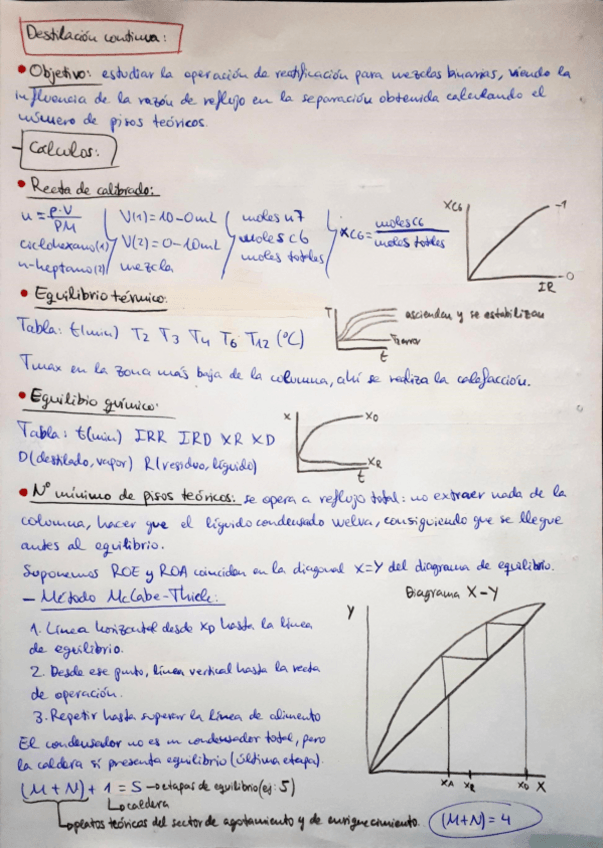 Destilación continua:
• Objetivo: estudiar la operación de rectificación para mezclas binarias, viendo la
influencia de la razón de reflujo en la separación obtenida calculando el
número de pisos teóricos.
Cálculos:
• Recta de calibrado:
n = ρ·V / PM
ciclohexano(1)
n-heptano(2)
V(1) = 10-0mL
V(2) = 0-10mL
mezcla
moles n7
moles c6
moles totales
XC6 = moles c6 / moles totales
XC6
1
0
IR
• Equilibrio térmico:
Tabla: t(min) T2 T3 T4 T6 T12 (ºC)
T
ascienden y se estabilizan
t
Tmax en la zona más baja de la columna, ahí se realiza la calefacción.
• Equilibrio químico:
Tabla: t(min) IRR IRD XR XD
D(destilado, vapor) R(residuo, líquido)
X
XD
XR
t
• Nº mínimo de pisos teóricos: se opera a reflujo total: no extraer nada de la
columna, hacer que el líquido condensado vuelva, consiguiendo que se llegue
antes al equilibrio.
Suponemos ROE y ROA coinciden en la diagonal X=Y del diagrama de equilibrio.
- Método McCabe-Thiele:
Diagrama X-Y
1. Línea horizontal desde XD hasta la línea
de equilibrio.
2. Desde ese punto, línea vertical hasta la recta
de operación.
3. Repetir hasta superar la línea de alimento
El condensador no es un condensador total, pero
la caldera sí presenta equilibrio (última etapa).
Y
XA
XR
XD
X
(M+N) + 1 = S → etapas de equilibrio (ej: 5)
caldera
platos teóricos del sector de agotamiento y de enriquecimiento.
(M+N) = 4